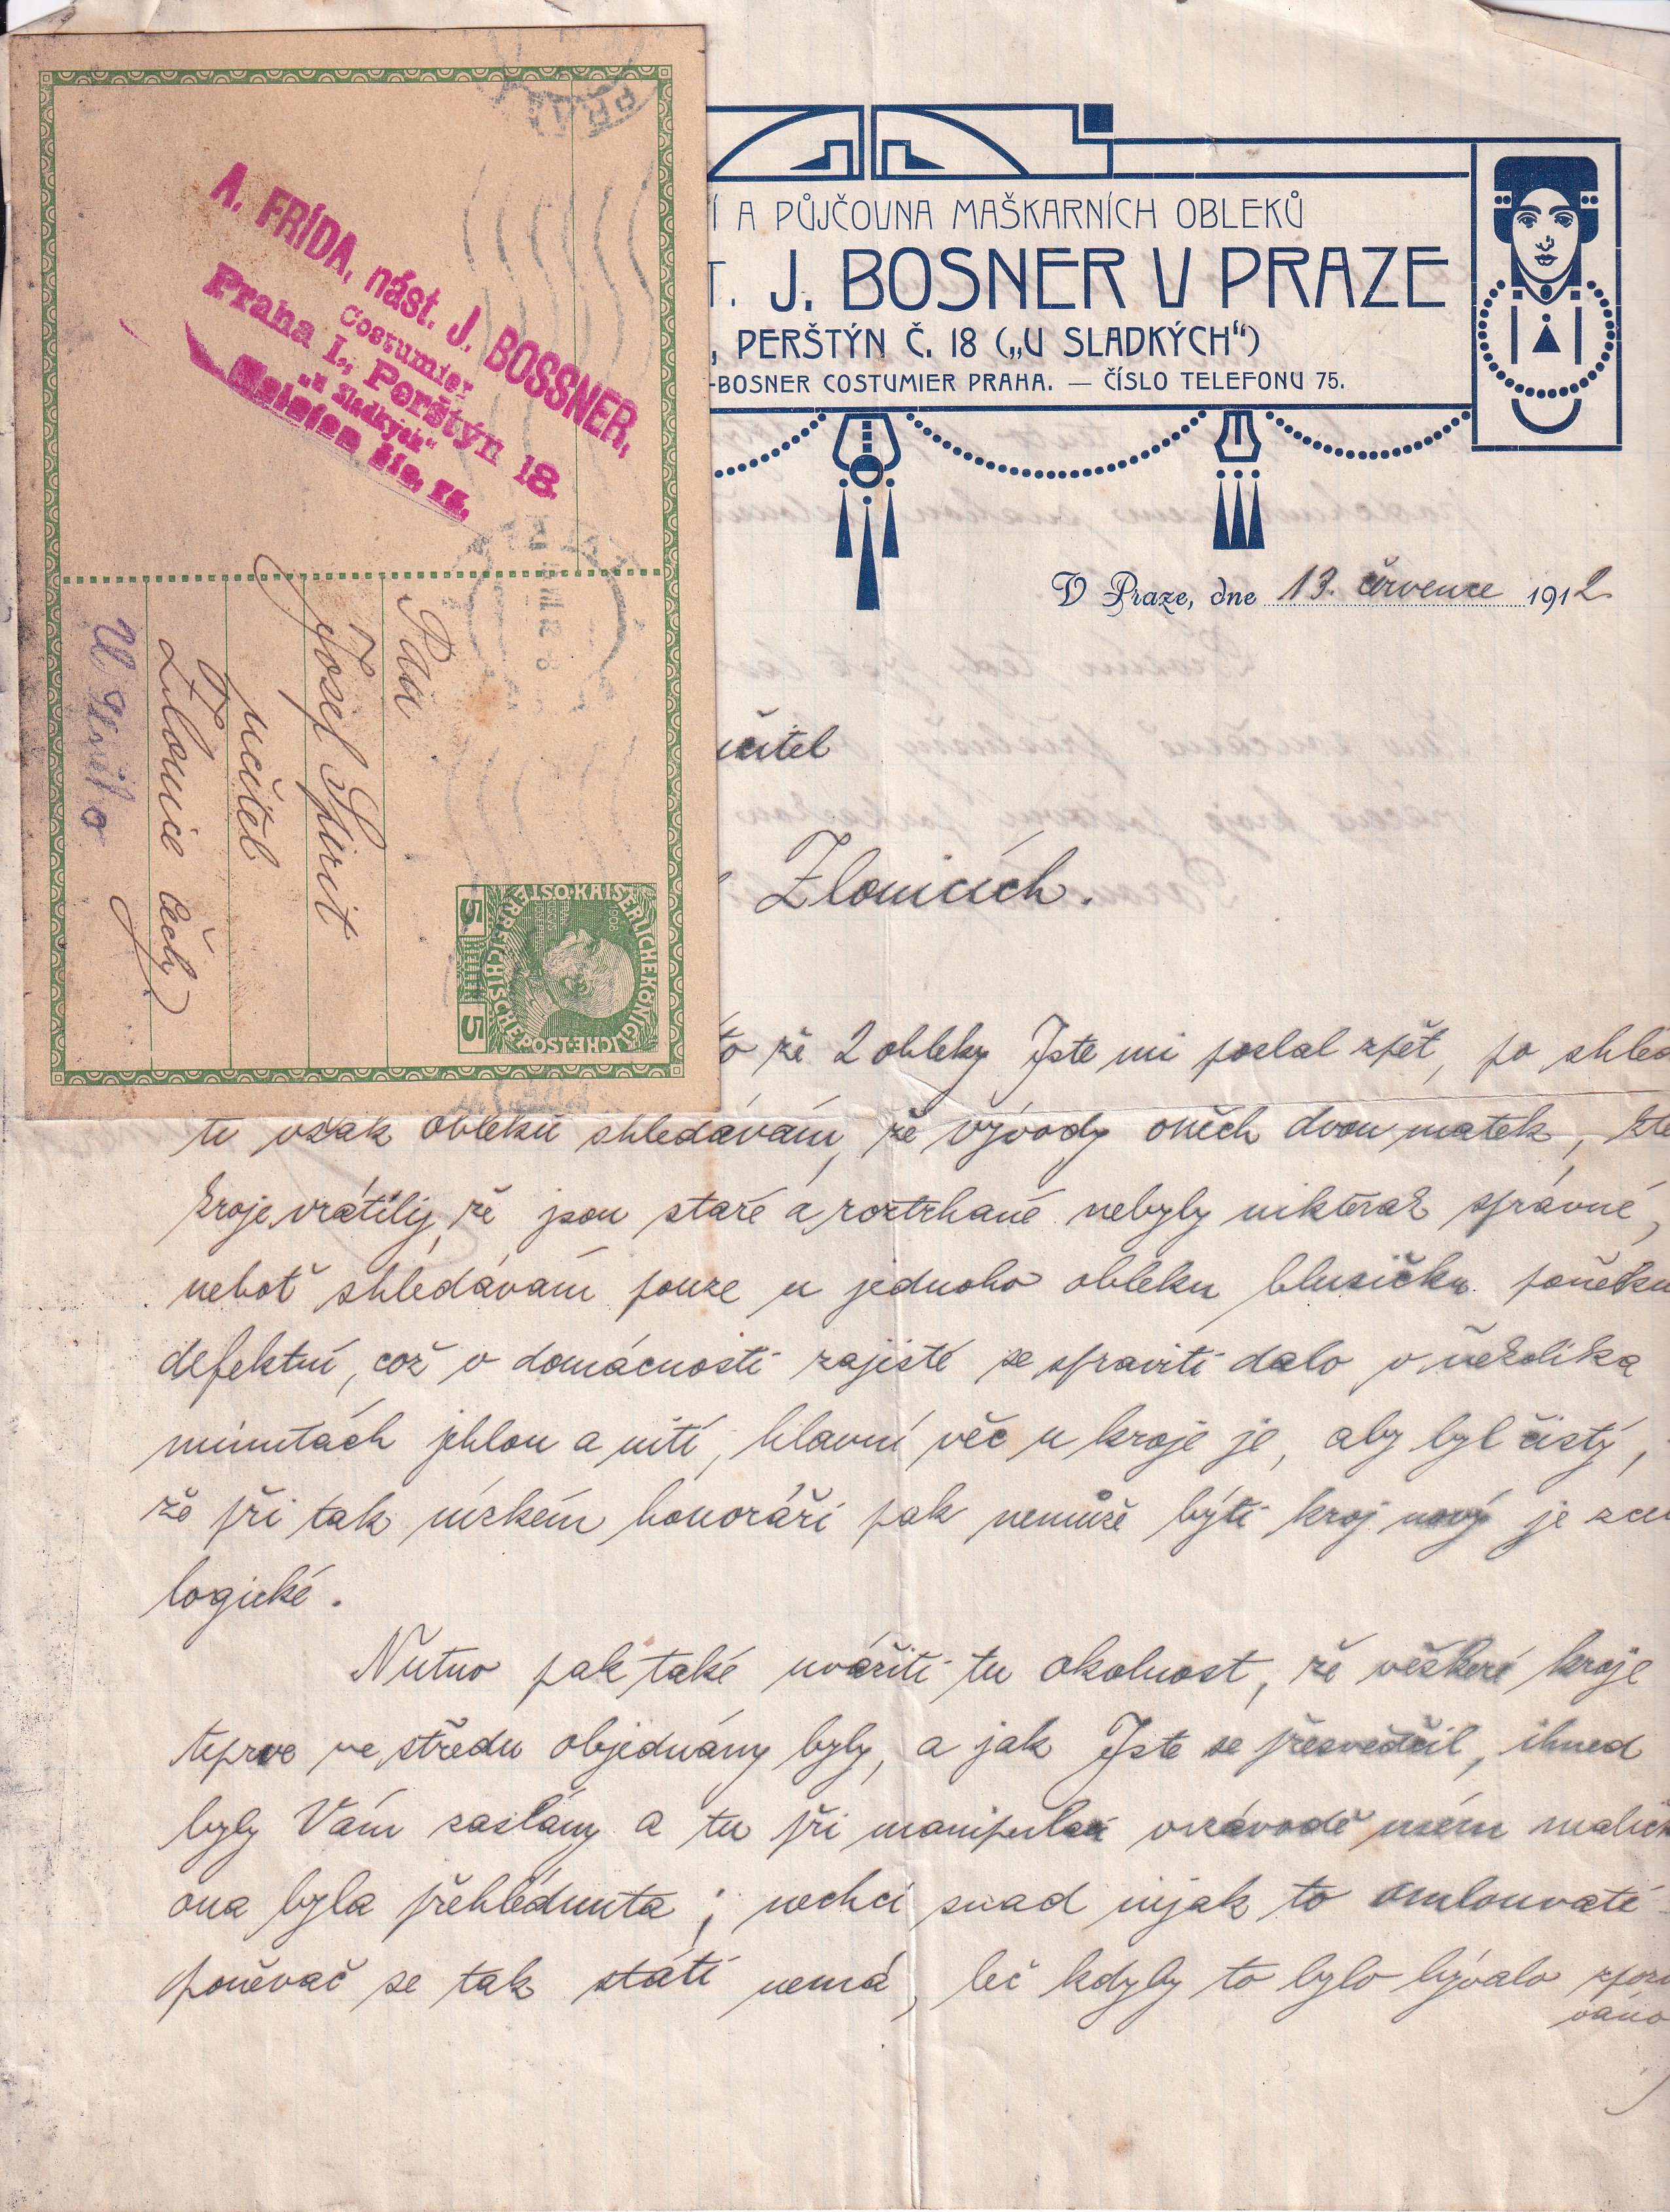 A. FRÍDA, nást. J. BOSSNER,
Costumier
Praha I., Perštýn 18.
„u Sladkých“
PRA
Pan
Josef Spirit
učitel
Zlonice Čechy
5 5
1908
KAISERLICHE KÖNIGLICHE ÖSTERREICHISCHE POST
Í A PŮJČOVNA MAŠKARNÍCH OBLEKŮ
T. J. BOSNER V PRAZE
, PERŠTÝN Č. 18 („U SLADKÝCH“)
-BOSNER COSTUMIER PRAHA. — ČÍSLO TELEFONU 75.
V Praze, dne 13. července 1912
učitel
Zlonicích.
to že 2 obleky Jste mi poslal zpět, po shléd
tu však obleků shledávám, že vývody oněch dvou matek, kte
kroje vrátily, že jsou staré a roztrhané nebyly nikterak správné,
neboť shledávám pouze u jednoho obleku blusičku poněku
defektní, což v domácnosti zajisté se spraviti dalo v několika
minutách jehlou a nití, hlavní věc u kroje je, aby byl čistý,
že při tak nízkém honoráři pak nemůže býti kroj nový je zce
logické.
Nutno pak také uvážiti tu okolnost, že veškeré kroje
teprve ve středu objednány byly, a jak Jste se přesvědčil, ihned
byly Vám zaslány a tu při manipulaci v závodě mém malič
ona byla přehlédnuta; nechci snad nijak to omlouvati
poněvač se tak státi nemá, leč kdyby to bylo bývalo zpozo
váno